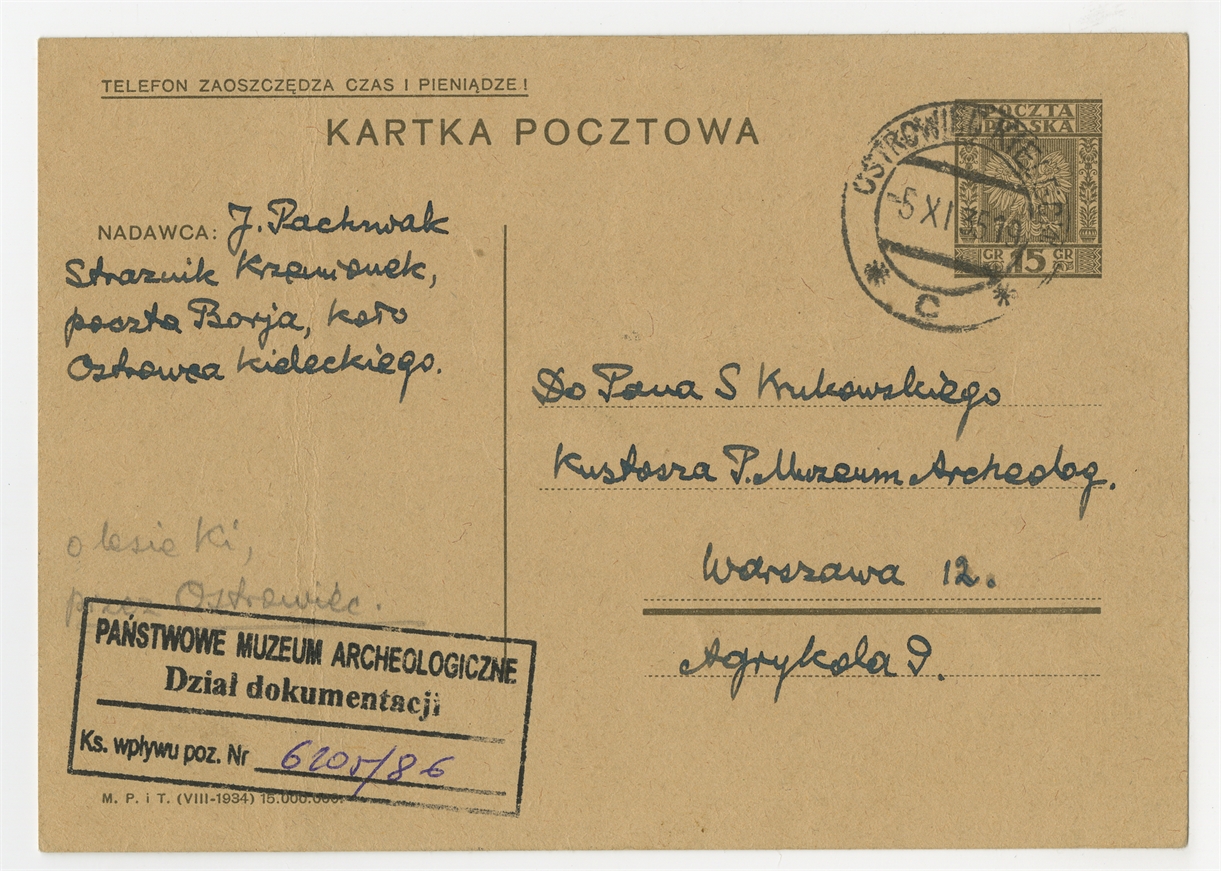 TELEFON ZAOSZCZĘDZA CZAS I PIENIĄDZE!
KARTKA POCZTOWA
POCZTA
POLSKA
GR 15 GR
OSTROWIEC KIELECKI
-5 XI 35 19
* C *
NADAWCA: J. Pachniak
Strażnik Krzemionek,
poczta Borja, koło
Ostrowca Kieleckiego.
Do Pana S Krukowskiego
Kustosza P. Muzeum Archeolog.
Warszawa 12.
Agrykola 9.
o lesie Ki,
przez Ostrowiec.
PAŃSTWOWE MUZEUM ARCHEOLOGICZNE
Dział dokumentacji
Ks. wpływu poz. Nr 6205/86
M. P. i T. (VIII-1934) 15.000.000.